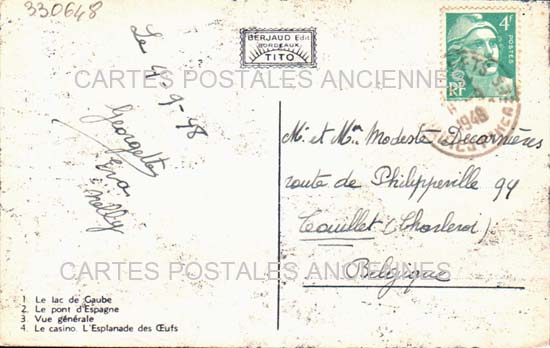 330648
BERJAUD Edit
BORDEAUX
TITO
4F
POSTES
RF
1948
CARTES POSTALES ANCIENNES
Le 4-9-48
Georgette
Eva
Nelly
M. et Mme Modeste Decarnières
route de Philippeville 94
Couillet (Charleroi)
Belgique
CARTES POSTALES ANCIENNES
1 Le lac de Gaube
2. Le pont d'Espagne
3 Vue générale
4. Le casino. L'Esplanade des Œufs